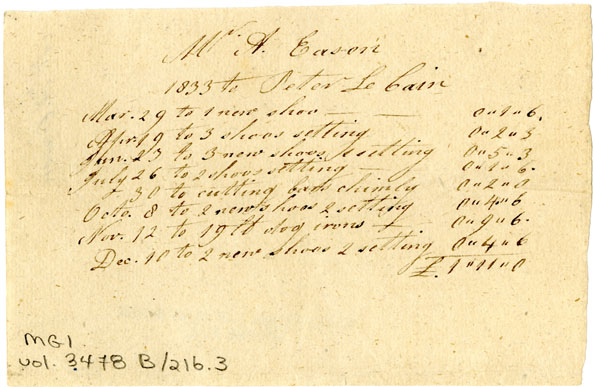 Mr. A. Eason
1833 to Peter Le Cain
Mar. 29 to 1 new shoo — — 0"1"6.
Apr. 9 to 3 shoos setting 0"2"3
Jun. 23 to 3 new shoos setting 0"5"3
July 26 to 2 shoos setting — 0"1"6.
" 30 to cutting bars chimly 0"2"0
Octo. 8 to 2 new shoos 2 setting 0"4"6
Nov. 12 to 19 lb dog irons — 0"9"6.
Dec. 10 to 2 new shoos 2 setting 0"4"6
£. 1"11"0
MG1
vol. 3478 B/216.3